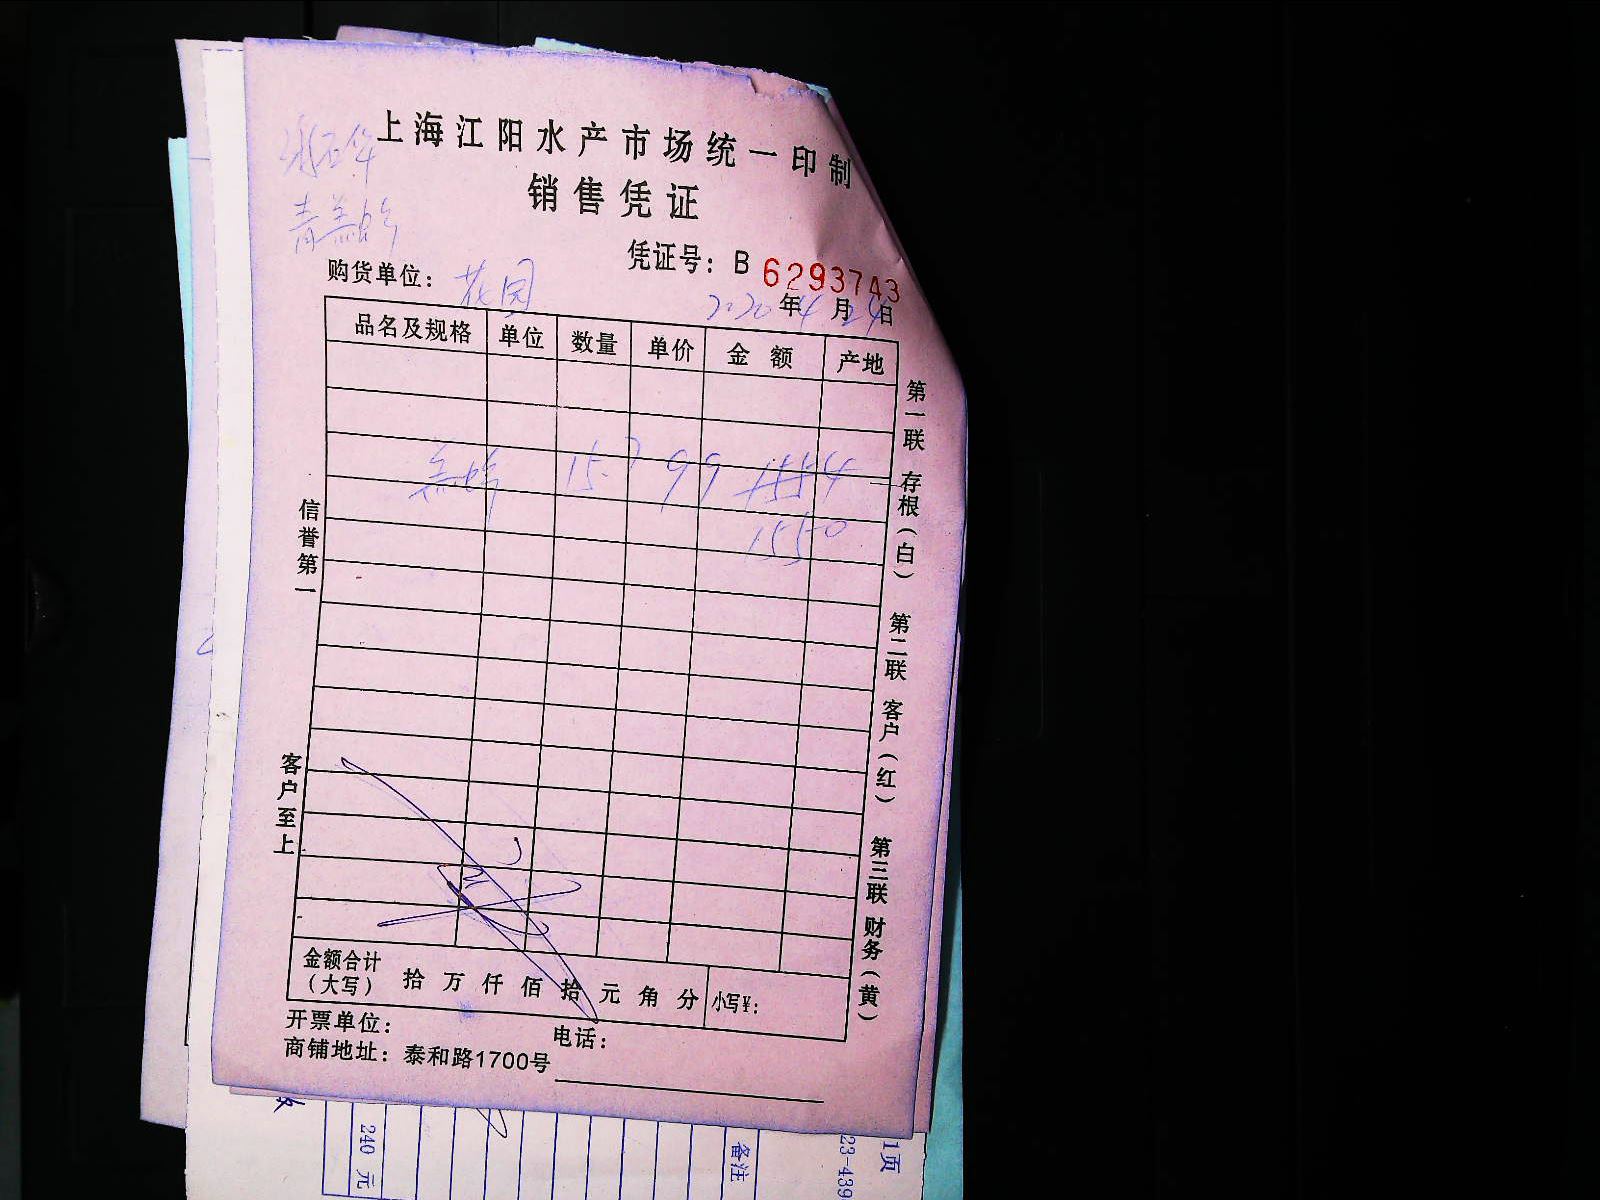 上海江阳水产市场统一印制
销售凭证
青羔蚧
凭证号：B 6293743
购货单位：花园
2020年4月24日
品名及规格 单位 数量 单价 金额 产地
羔蚧 15.7 99 1554
1550
信誉第一
客户至上
第一联 存根（白） 第二联 客户（红） 第三联 财务（黄）
金额合计（大写） 拾 万 仟 佰 拾 元 角 分 小写¥：
开票单位： 电话：
商铺地址：泰和路1700号
240 元
备注
23-439
1页